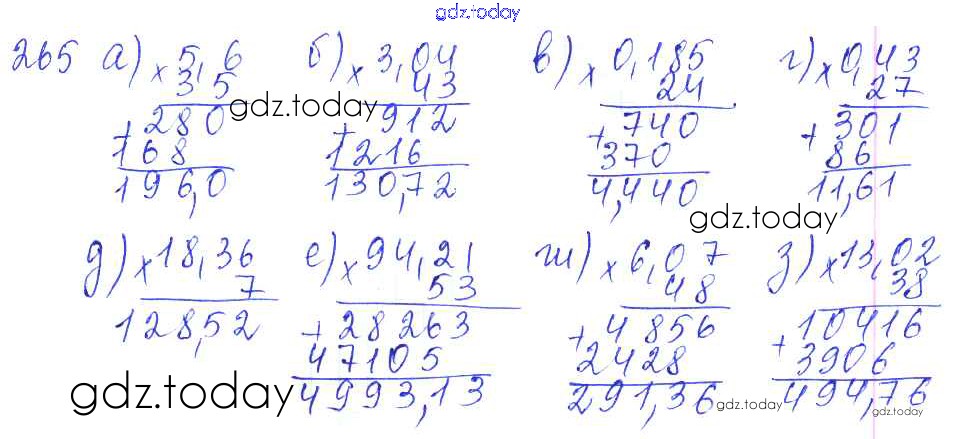 gdz.today
265 а) × 5,6 б) × 3,04 в) × 0,185 г) × 0,43
35 43 24 27
gdz.today
+ 280 + 912 + 740 + 301
168 1216 370 86
196,0 130,72 4,440 11,61
gdz.today
д) × 18,36 е) × 94,21 ж) × 6,07 з) × 13,02
7 53 48 38
128,52 + 28263 + 4856 + 10416
47105 2428 3906
4993,13 291,36 494,76
gdz.today gdz.today gdz.today